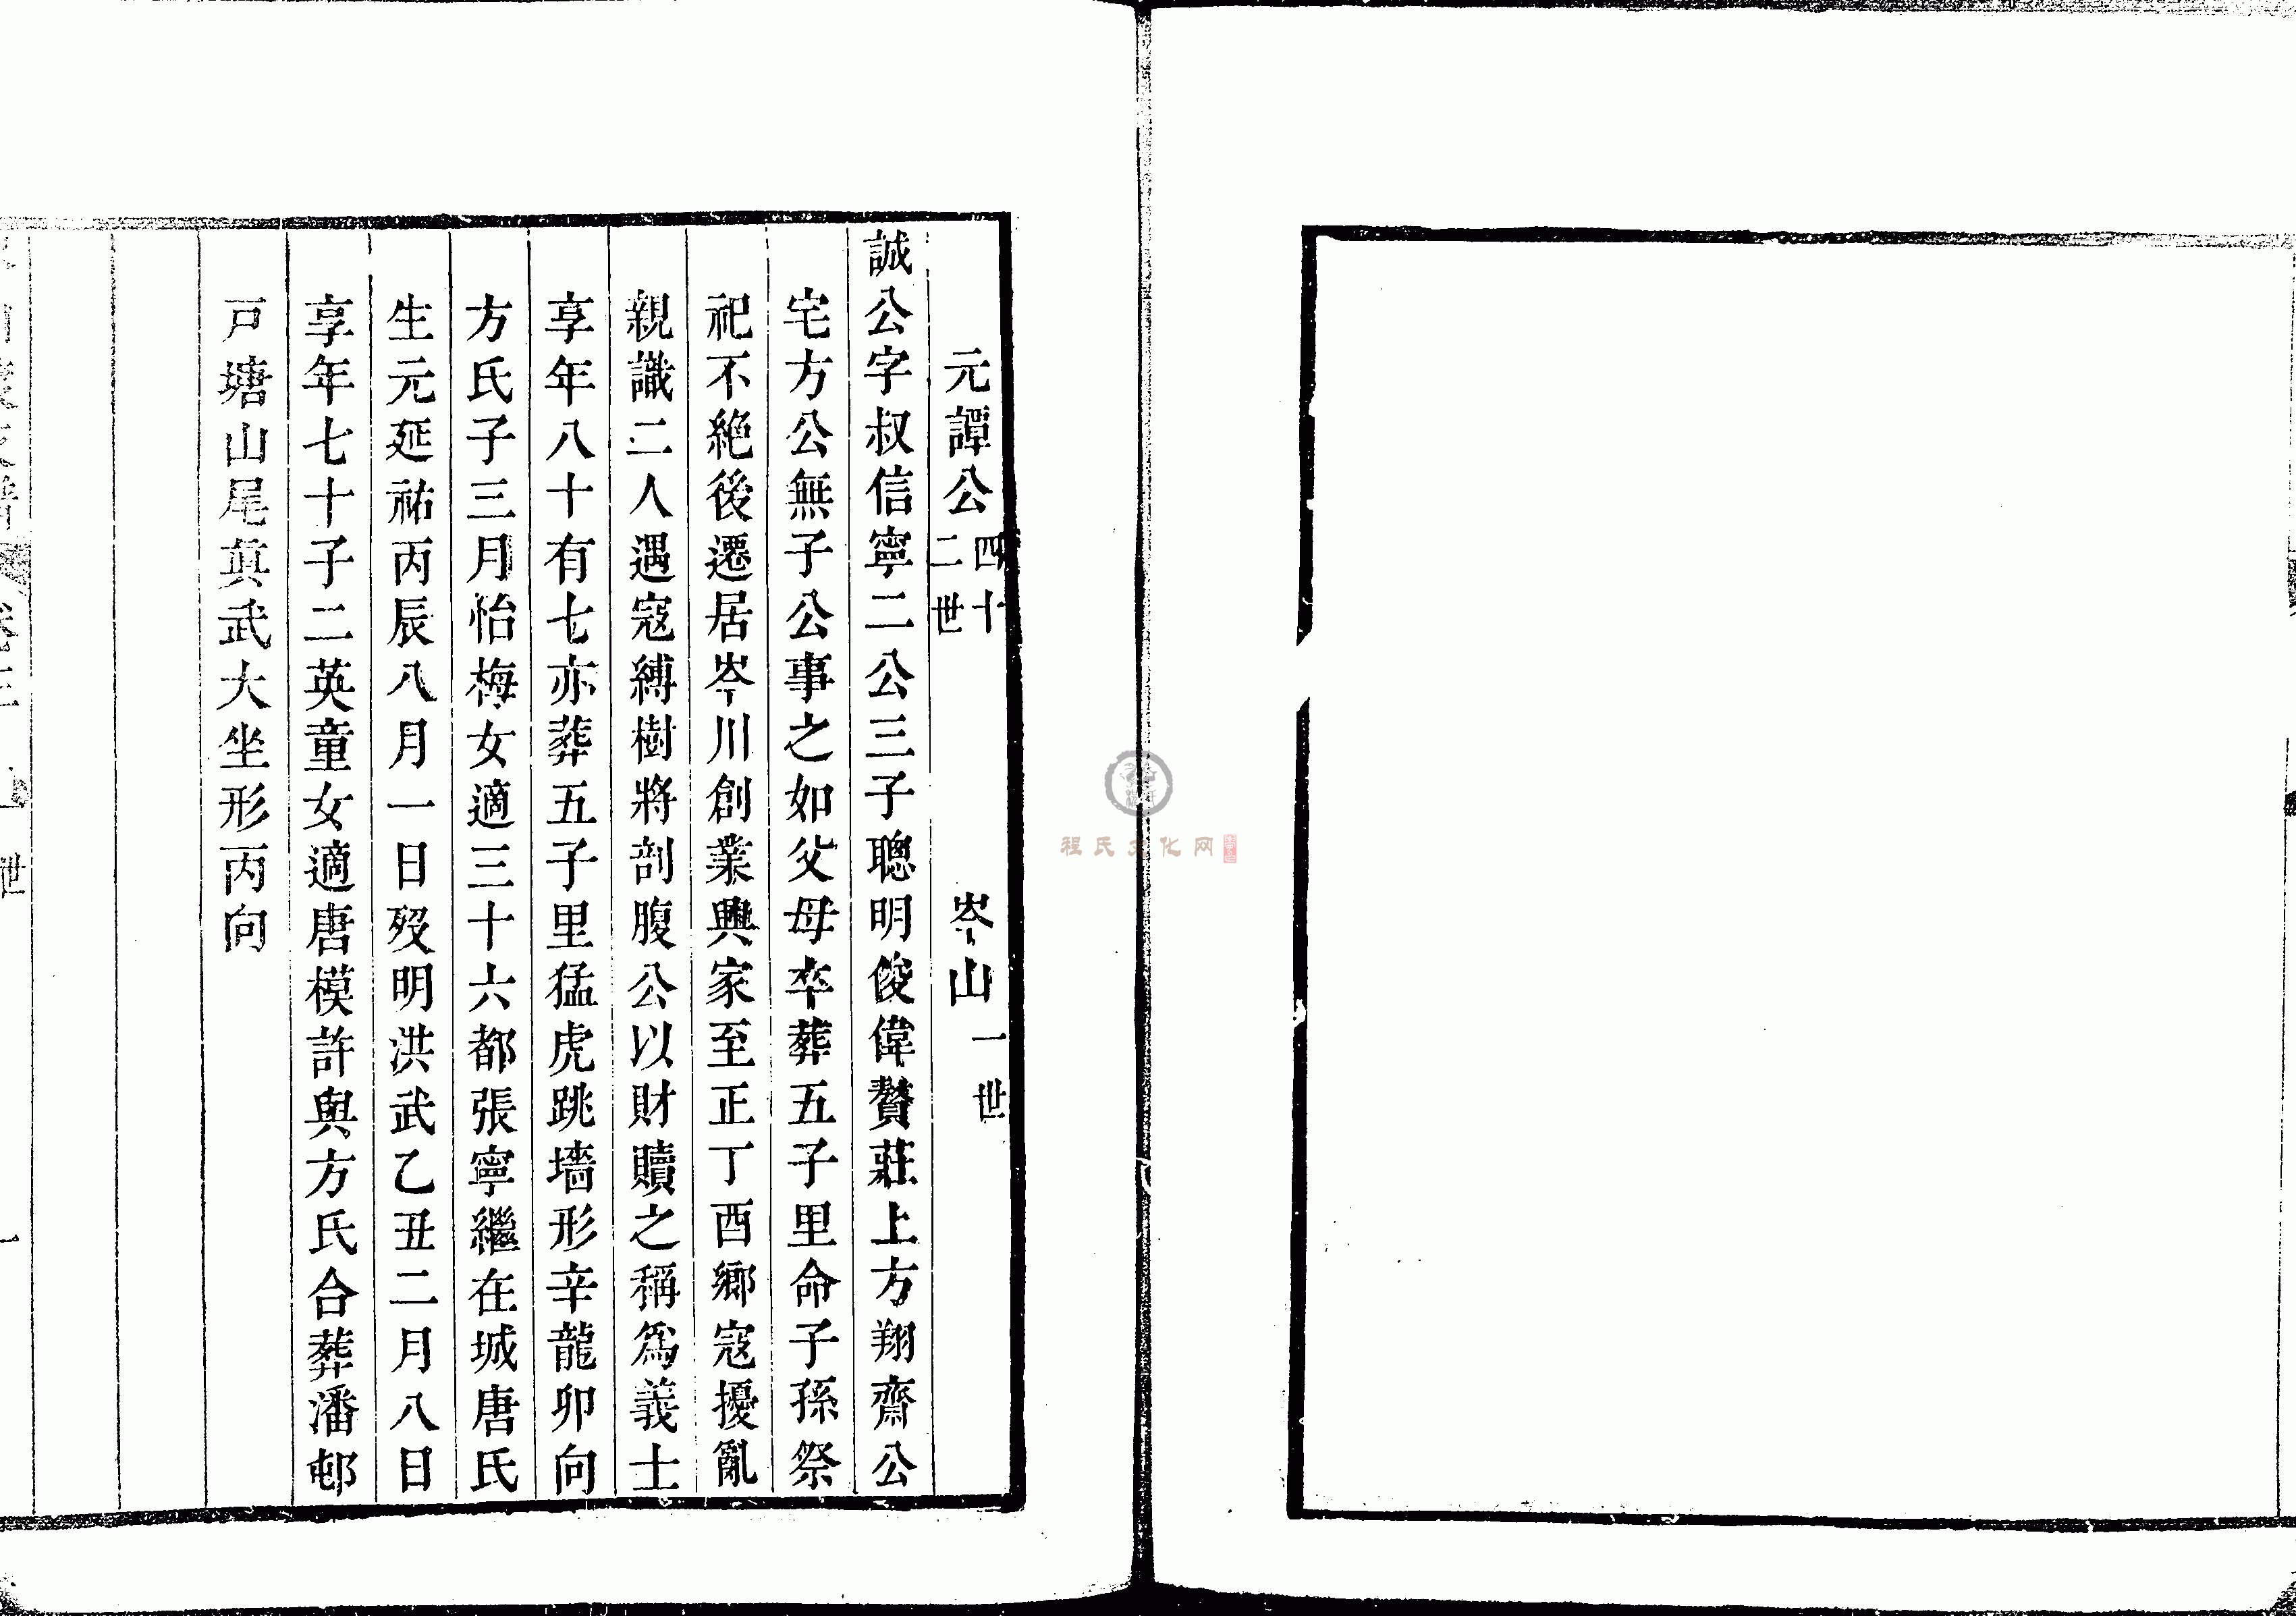 元譚公四十二世 岑山一世
誠公字叔信寧二公三子聰明俊偉贅莊上方翔齋公
宅方公無子公事之如父母卒葬五子里命子孫祭
祀不絶後遷居岑川創業興家至正丁酉鄉寇擾亂
親識二人遇寇縛樹將剖腹公以財贖之稱爲義士
享年八十有七亦葬五子里猛虎跳墻形辛龍卯向
方氏子三月怡梅女適三十六都張寧繼在城唐氏
生元延祐丙辰八月一日歿明洪武乙丑二月八日
享年七十子二英童女適唐模許與方氏合葬潘邨
戸塘山尾真武大坐形丙向
世
一
程氏文化网